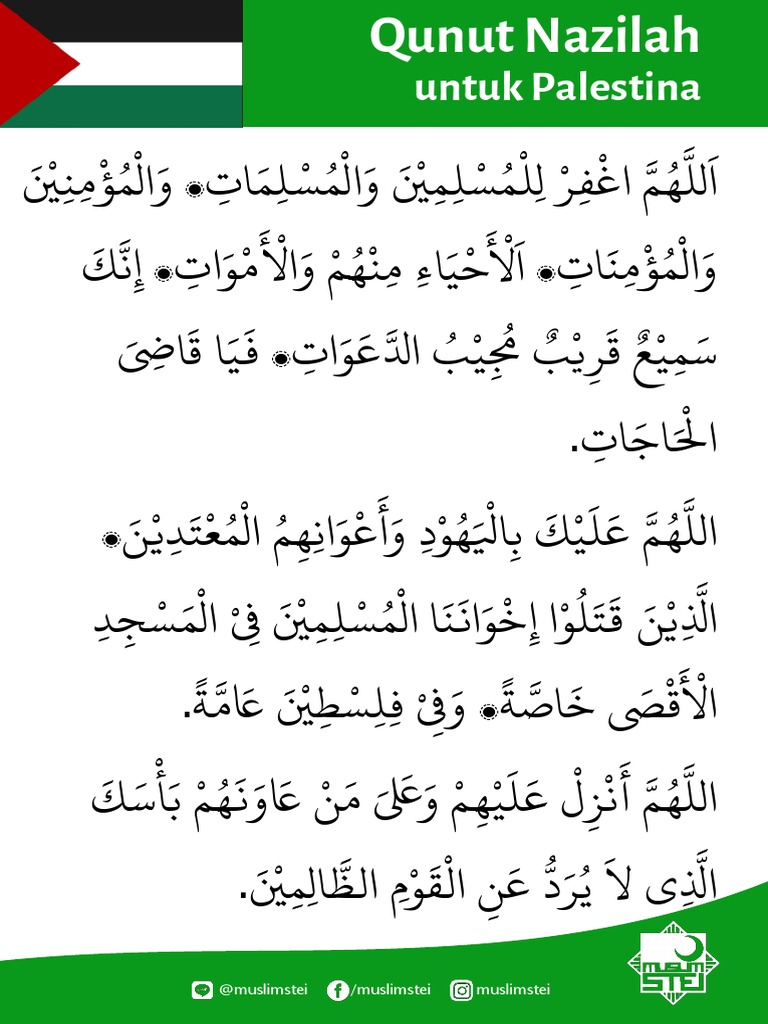 Qunut Nazilah
untuk Palestina
اَللَّهُمَّ اغْفِرْ لِلْمُسْلِمِيْنَ وَالْمُسْلِمَاتِ۞ وَالْمُؤْمِنِيْنَ
وَالْمُؤْمِنَاتِ۞ اَلْأَحْيَاءِ مِنْهُمْ وَالْأَمْوَاتِ۞ إِنَّكَ
سَمِيْعٌ قَرِيْبٌ مُجِيْبُ الدَّعَوَاتِ۞ فَيَا قَاضِىَ
الْحَاجَاتِ.
اللَّهُمَّ عَلَيْكَ بِالْيَهُوْدِ وَأَعْوَانِهِمُ الْمُعْتَدِيْنَ۞
الَّذِيْنَ قَتَلُوْا إِخْوَانَنَا الْمُسْلِمِيْنَ فِىْ الْمَسْجِدِ
الْأَقْصَى خَاصَّةً۞ وَفِىْ فِلِسْطِيْنَ عَامَّةً.
اللَّهُمَّ أَنْزِلْ عَلَيْهِمْ وَعَلَىَ مَنْ عَاوَنَهُمْ بَأْسَكَ
الَّذِى لاَ يُرَدُّ عَنِ الْقَوْمِ الظَّالِمِيْنَ.
MUSLIM
STEI
@muslimstei /muslimstei muslimstei